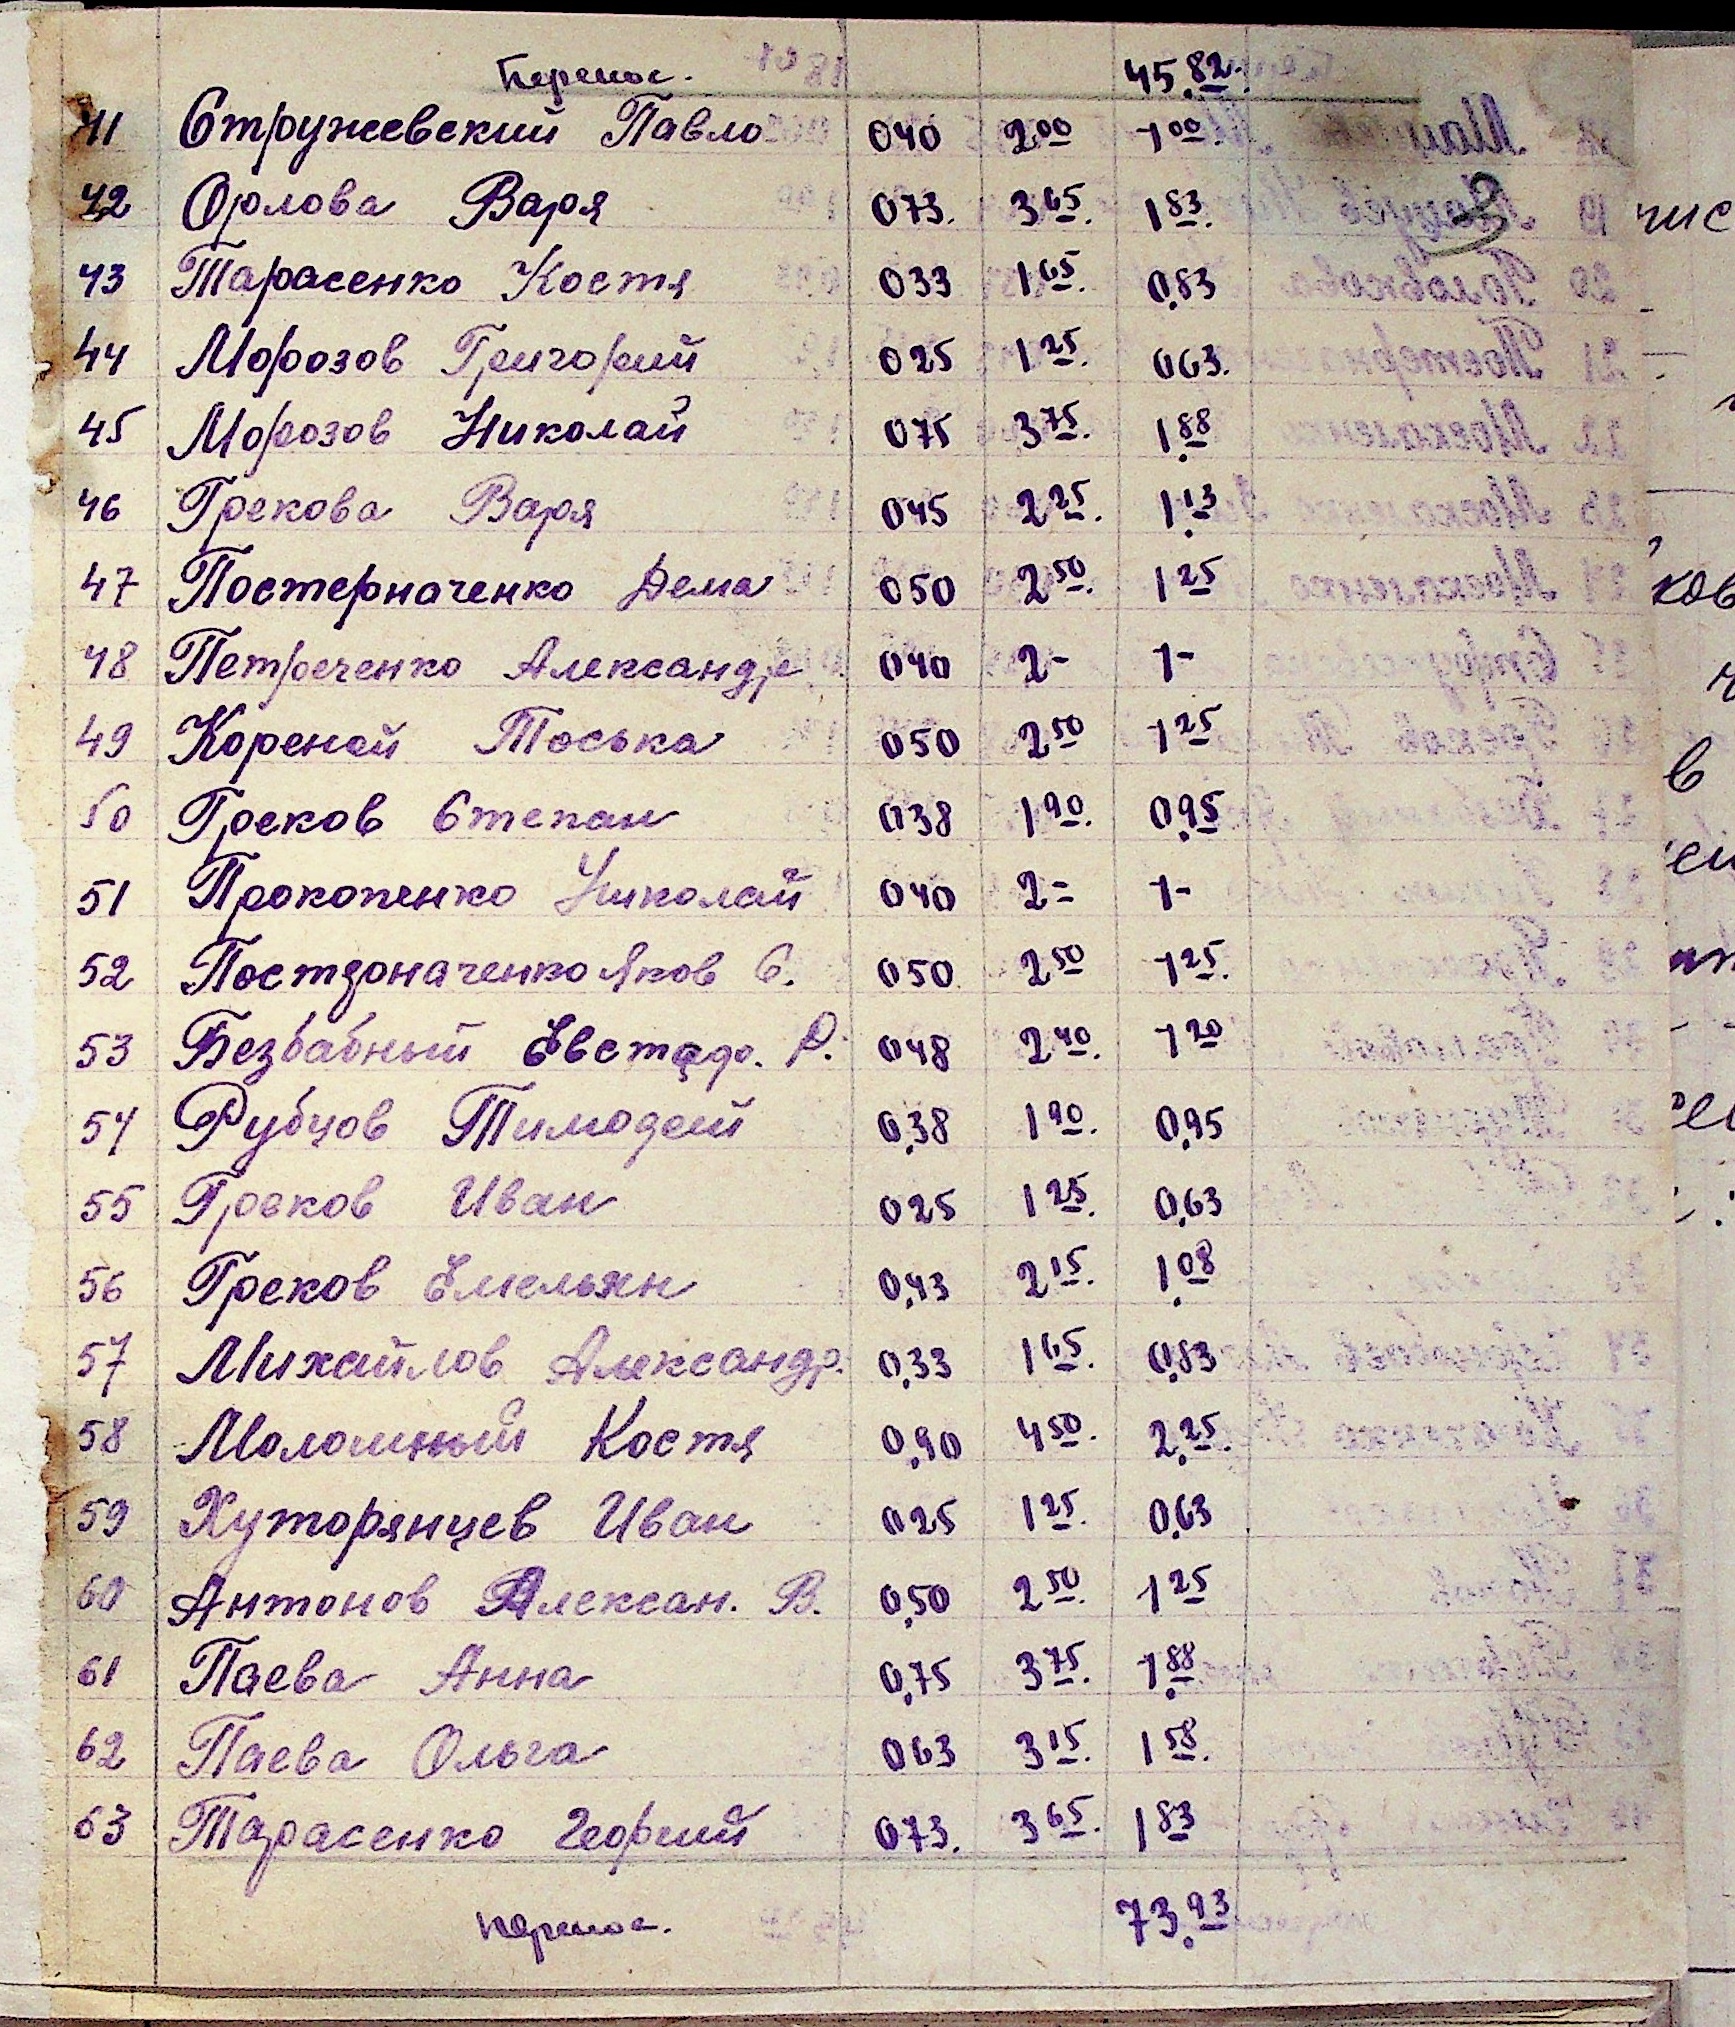 Перенос. 45.82.
41 Стружевский Павло 040 2 00 1 00.
42 Орлова Варя 073. 3 65. 1 83.
43 Тарасенко Костя 033 1 65. 0,83
44 Морозов Григорий 025 1 25. 063.
45 Морозов Николай 075 3 75. 1.88
46 Грекова Варя 045 2 25. 1.13
47 Постерначенко Дема 050 2 50. 1 25
48 Петреченко Александр 040 2- 1-
49 Кореной Тоська 050 2 50 1 25
50 Греков Степан 038 1 90. 0,95
51 Прокопенко Николай 040 2= 1-
52 Яков С. 050 2 50 1 25.
53 Безбабный Р. 048 2 40. 1 20
54 Рубцов Тимофей 0,38 1 90. 0,95
55 Греков Иван 025 1 25. 0,63
56 Греков Емельян 0,43 2 15. 1.08
57 Михайлов Александр. 0,33 1 65. 0,83
58 Костя 0,90 4 50. 2.25.
59 Хуторянцев Иван 025 1 25. 0,63
60 Антонов Алексан. В. 0,50 2 50. 1 25
61 Паева Анна 0,75 3 75. 1.88
62 Паева Ольга 063 3 15. 1 58.
63 Тарасенко Георгий 073. 3 65. 1 83
перенос. 73.93